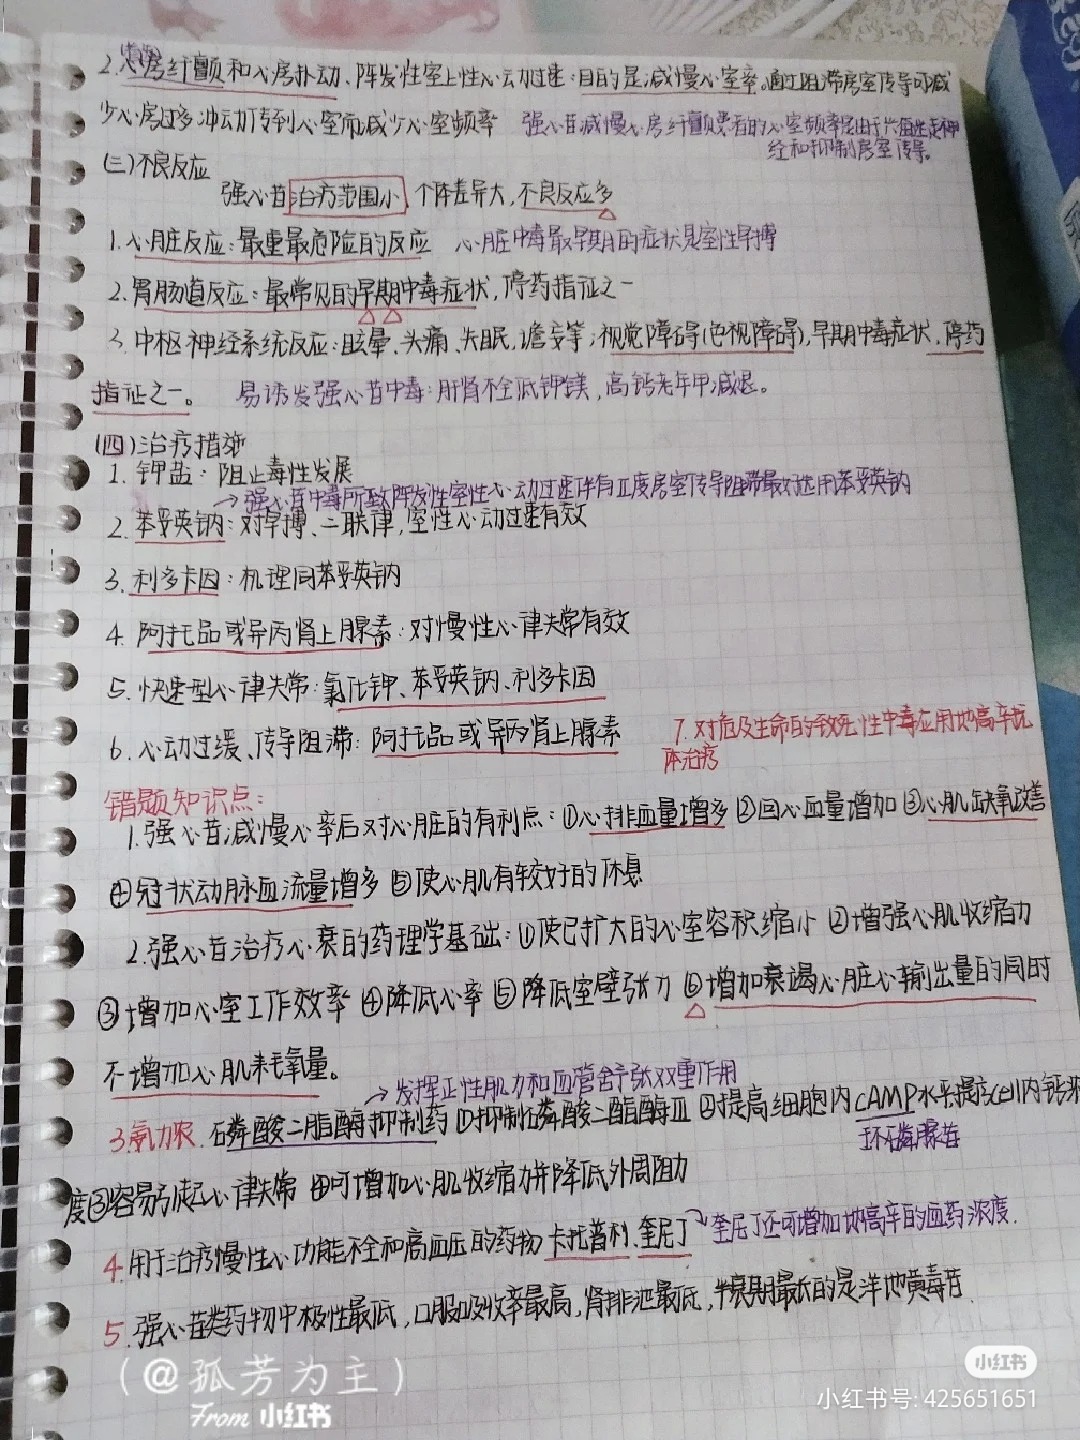 2.心房纤颤和心房扑动、阵发性室上性心动过速:目的是减慢心室率。通过阻滞房室传导可减
少心房过多冲动传到心室而减少心室频率 强心苷减慢心房纤颤患者的心室频率是由于兴奋迷走神
经和抑制房室传导。
(三)不良反应
强心苷治疗范围小 个体差异大,不良反应多
1.心脏反应:最重最危险的反应 心脏中毒最早期的症状是室性早搏
2.胃肠道反应:最常见的早期中毒症状,停药指征之一
3.中枢神经系统反应:眩晕、头痛、失眠,谵妄等;视觉障碍(色视障碍),早期中毒症状,停药
指征之一。 易诱发强心苷中毒:肝肾不全低钾镁,高钙老年甲减退。
(四)治疗措施
1.钾盐:阻止毒性发展
→强心苷中毒所致阵发性室性心动过速伴有Ⅱ度房室传导阻滞最好选用苯妥英钠
2.苯妥英钠:对早搏、二联律,室性心动过速有效
3.利多卡因:机理同苯妥英钠
4.阿托品或异丙肾上腺素:对慢性心律失常有效
5.快速型心律失常:氯化钾、苯妥英钠、利多卡因
6.心动过缓、传导阻滞:阿托品或异丙肾上腺素 7.对危及生命的致死性中毒应用地高辛抗
体治疗
错题知识点:
1.强心苷减慢心率后对心脏的有利点:①心排血量增多②回心血量增加③心肌缺氧改善
④冠状动脉血流量增多⑤使心肌有较好的休息
2.强心苷治疗心衰的药理学基础:①使已扩大的心室容积缩小②增强心肌收缩力
③增加心室工作效率④降低心率⑤降低室壁张力⑥增加衰竭心脏心输出量的同时
不增加心肌耗氧量。
→发挥正性肌力和血管舒张双重作用
3.氨力农.磷酸二脂酶抑制药①抑制磷酸二酯酶Ⅲ②提高细胞内cAMP水平提高内钙浓
环磷腺苷
度③容易引起心律失常④可增加心肌收缩力并降低外周阻力
4.用于治疗慢性心功能不全和高血压的药物卡托普利、奎尼丁→奎尼丁还可增加地高辛的血药浓度.
5.强心苷类药物中极性最低,口服吸收率最高,肾排泄最低,半衰期最长的是洋地黄毒苷.
(@孤芳为主)
From 小红书
小红书
小红书号:425651651